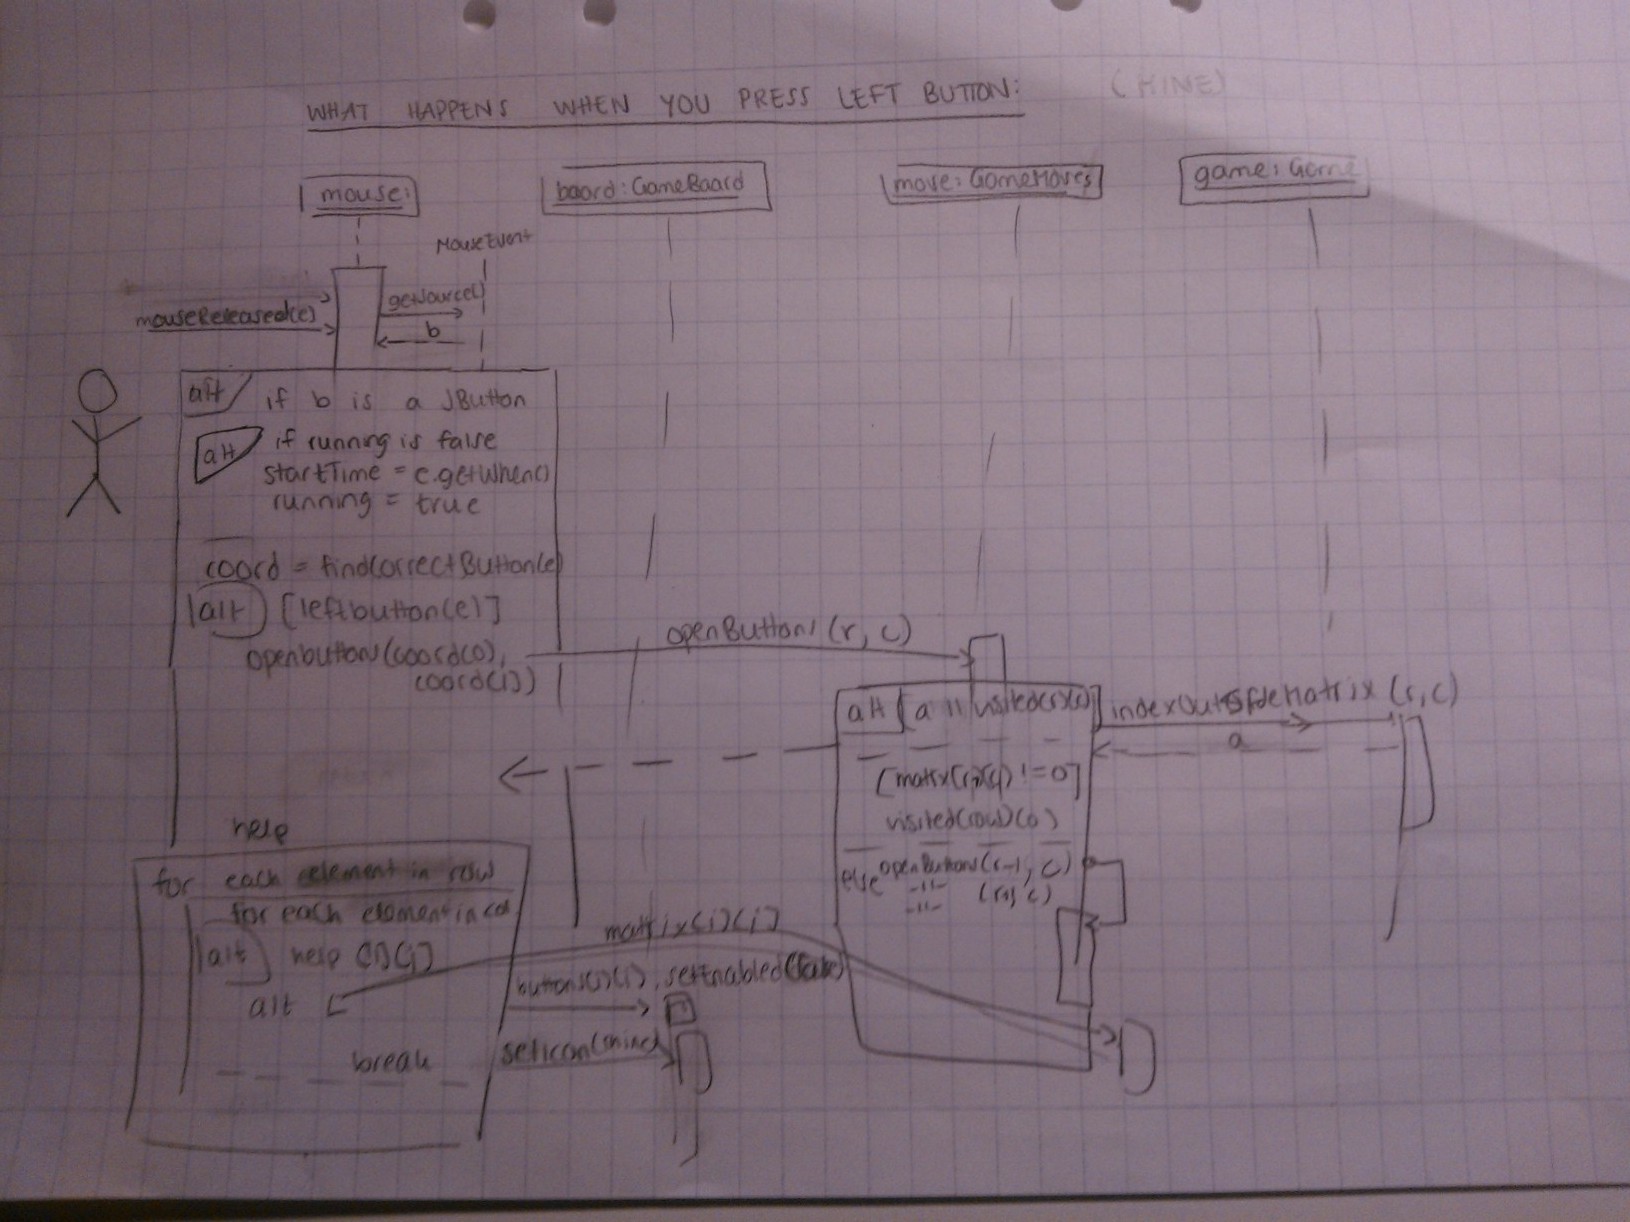 WHAT HAPPENS WHEN YOU PRESS LEFT BUTTON: (MINE)
mouse: board:GameBoard move:GameMoves game:Game
MouseEvent
getSource()
mouseReleased(e)
b
alt if b is a JButton
alt if running is false
startTime = e.getWhen()
running = true
coord = findCorrectButton(e)
alt [leftbutton(e)]
openButtons(r, c)
openbuttons(coord(0),
coord(1))
alt [a || visited(r)(c)] indexOutsideMatrix (r,c)
a
[matrix(r)(c) != 0]
visited(row)(c)
help
for each element in row
else openButtons(r-1, c)
-11- (r+1, c)
-11-
for each element in col
matrix(i)(j)
alt help (i)(j)
buttons(i)(j).setEnabled(false)
alt [
break
setIcon(mine)